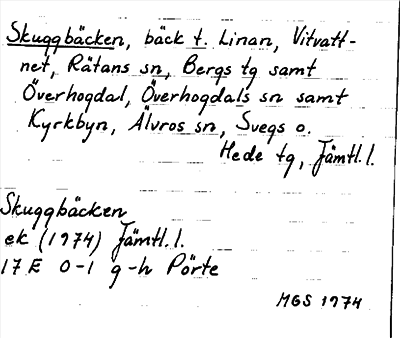 Skuggbäcken, bäck t. Linan, Vitvatt-
net, Rätans sn, Bergs tg samt
Överhogdal, Överhogdals sn samt
Kyrkbyn, Älvros sn, Svegs o.
Hede tg, Jämtl. l.
Skuggbäcken
ek (1974) Jämtl. l.
17 E 0-1 g-h Pörte
MGS 1974